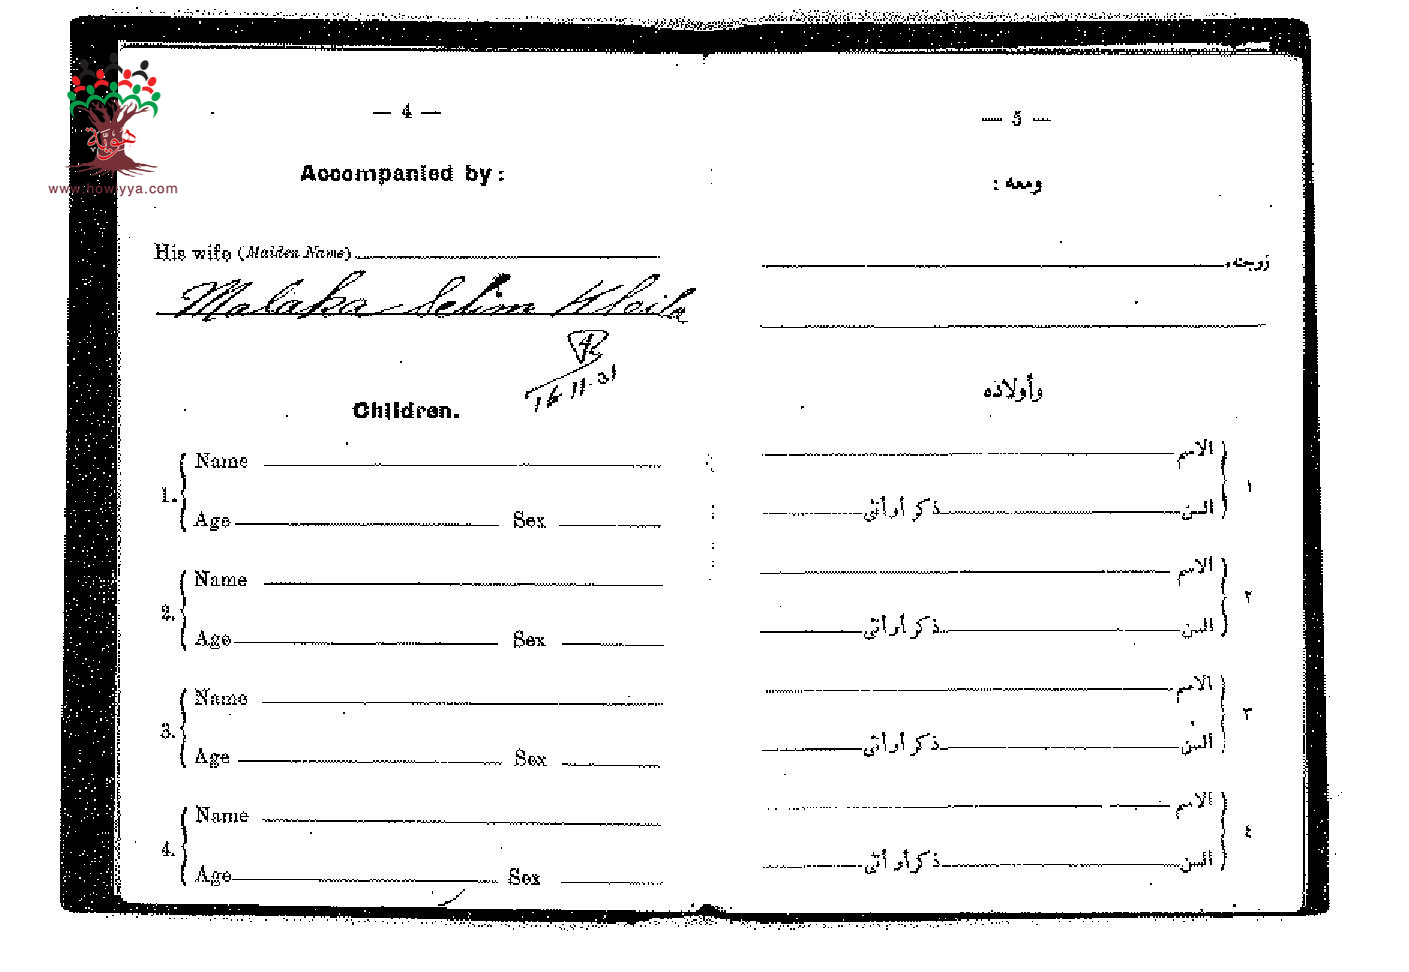 هوية
www.howiyya.com
— 4 —
Accompanied by :
His wife (Maiden Name)
Malaka Selim Kleila
16-11-31
Children.
1. Name
Age Sex
2. Name
Age Sex
3. Name
Age Sex
4. Name
Age Sex
— 5 —
ومعه :
زوجته
وأولاده
١ الاسم
السن ذكر أو أنثى
٢ الاسم
السن ذكر أو أنثى
٣ الاسم
السن ذكر أو أنثى
٤ الاسم
السن ذكر أو أنثى